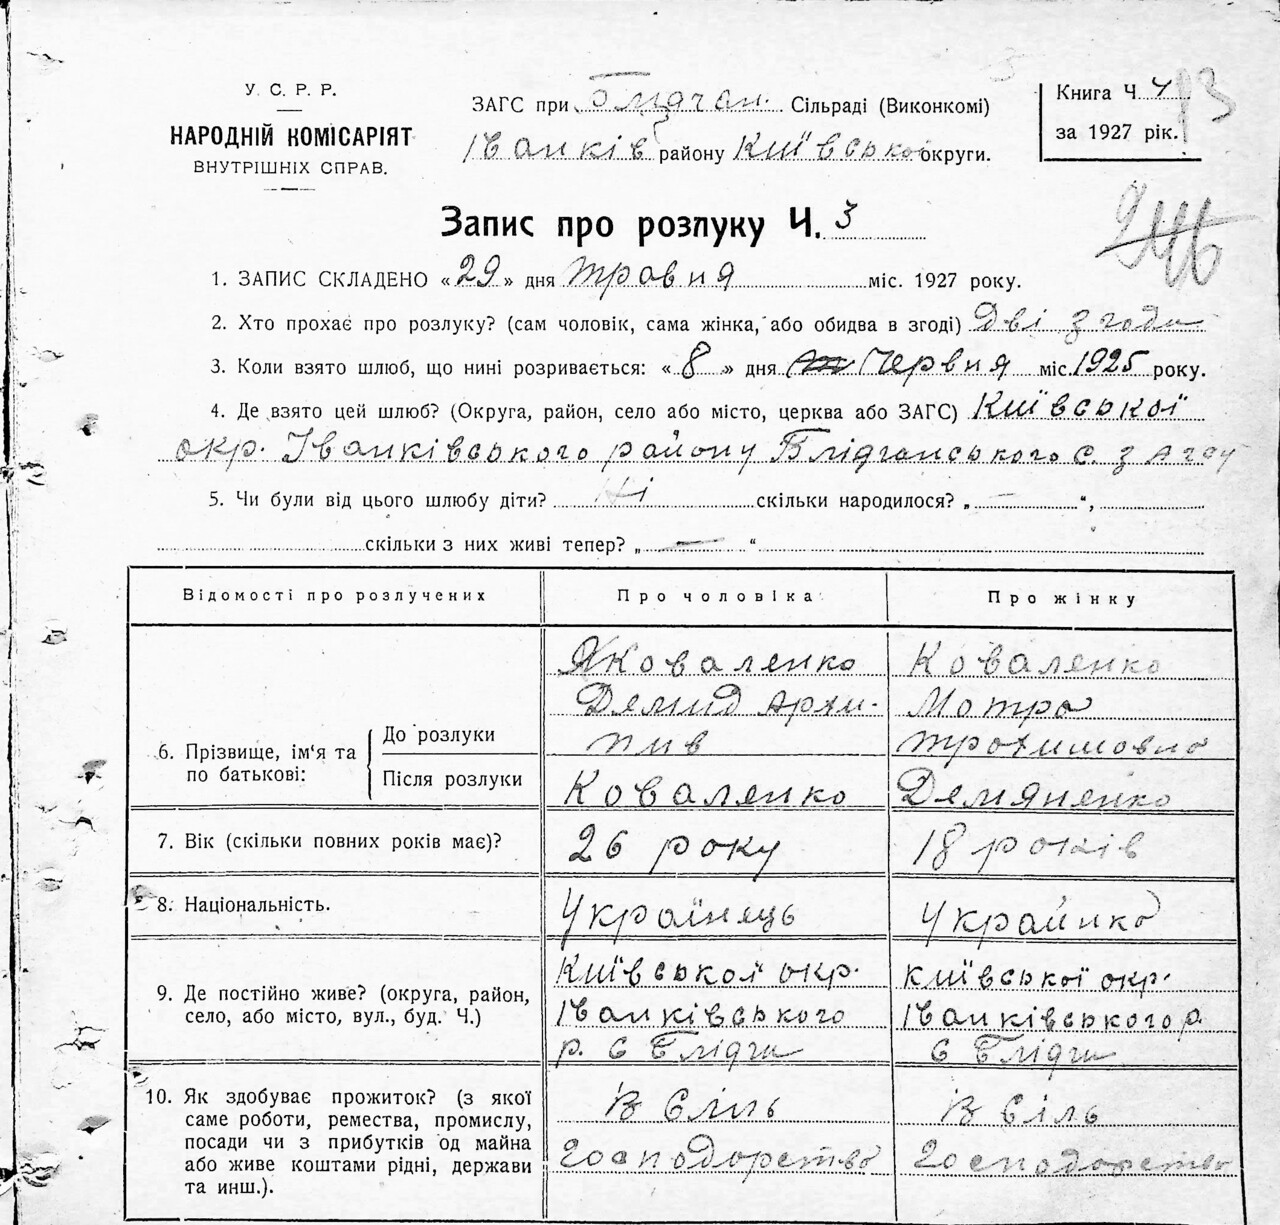 У. С. Р. Р.
НАРОДНІЙ КОМІСАРІЯТ
ВНУТРІШНІХ СПРАВ.
ЗАГС при Блідчан. Сільраді (Виконкомі)
Іванків району Київсько округи.
Книга Ч. 4
за 1927 рік.
93
246
Запис про розлуку Ч. 3
1. ЗАПИС СКЛАДЕНО «29» дня травня міс. 1927 року.
2. Хто прохає про розлуку? (сам чоловік, сама жінка, або обидва в згоді) Дві згоди
3. Коли взято шлюб, що нині розривається: «8» дня Червня міс. 1925 року.
4. Де взято цей шлюб? (Округа, район, село або місто, церква або ЗАГС) Київської
окр. Іванківського району Блідчанського с. загсу
5. Чи були від цього шлюбу діти? Ні скільки народилося? „ — “,
скільки з них живі тепер? „ — “
Відомості про розлучених
Про чоловіка
Про жінку
6. Прізвище, ім'я та по батькові:
До розлуки
Після розлуки
Коваленко
Демид Архи-
пив
Коваленко
Коваленко
Мотра
Трохимовна
Демяненко
7. Вік (скільки повних років має)?
26 року
18 років
8. Національність.
Українець
Українка
9. Де постійно живе? (округа, район,
село, або місто, вул., буд. Ч.)
Київської окр.
Іванківського
р. с Блідчи
київської окр.
Іванківського р.
с Блідчи
10. Як здобуває прожиток? (з якої
саме роботи, ремества, промислу,
посади чи з прибутків од майна
або живе коштами рідні, держави
та инш.).
В Сіль
господарство
В Сіль
господарство